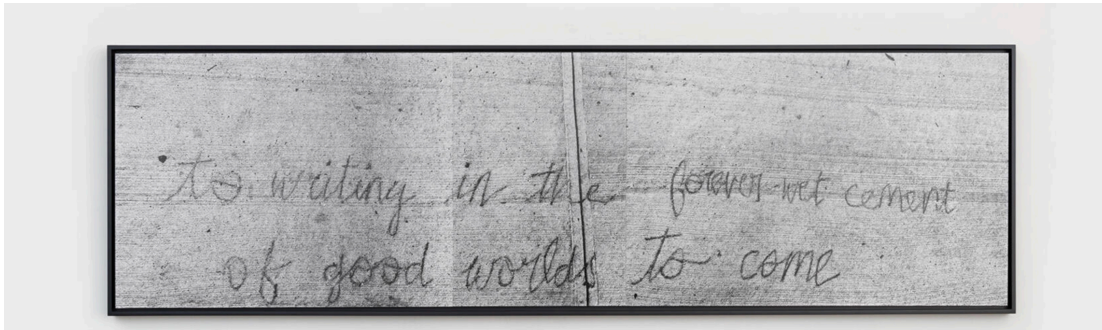 to writing in the forever wet cement
of good worlds to come